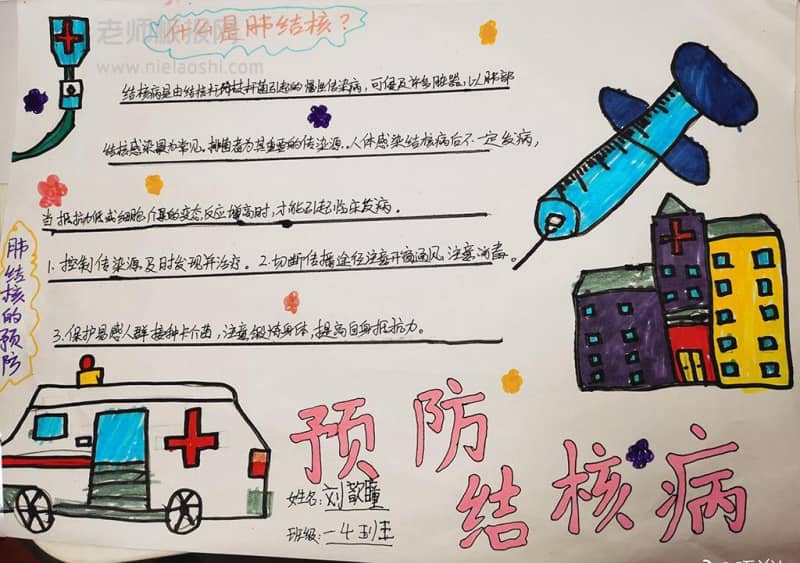 什么是肺结核？
老师板报网
www.nielaoshi.com
结核病是由结核杆菌引起的慢性传染病，可侵及许多脏器，以肺部
结核感染最为常见。排菌者为其重要的传染源。人体感染结核病后不一定发病，
当抵抗力低或细胞介导的变态反应增高时，才能引起临床发病。
肺结核的预防
1.控制传染源，及时发现并治疗。2.切断传播途径注意开窗通风，注意消毒。
3.保护易感人群接种卡介苗，注意锻炼身体，提高自身抵抗力。
预防
结核病
姓名：刘歆瞳
班级：一4班